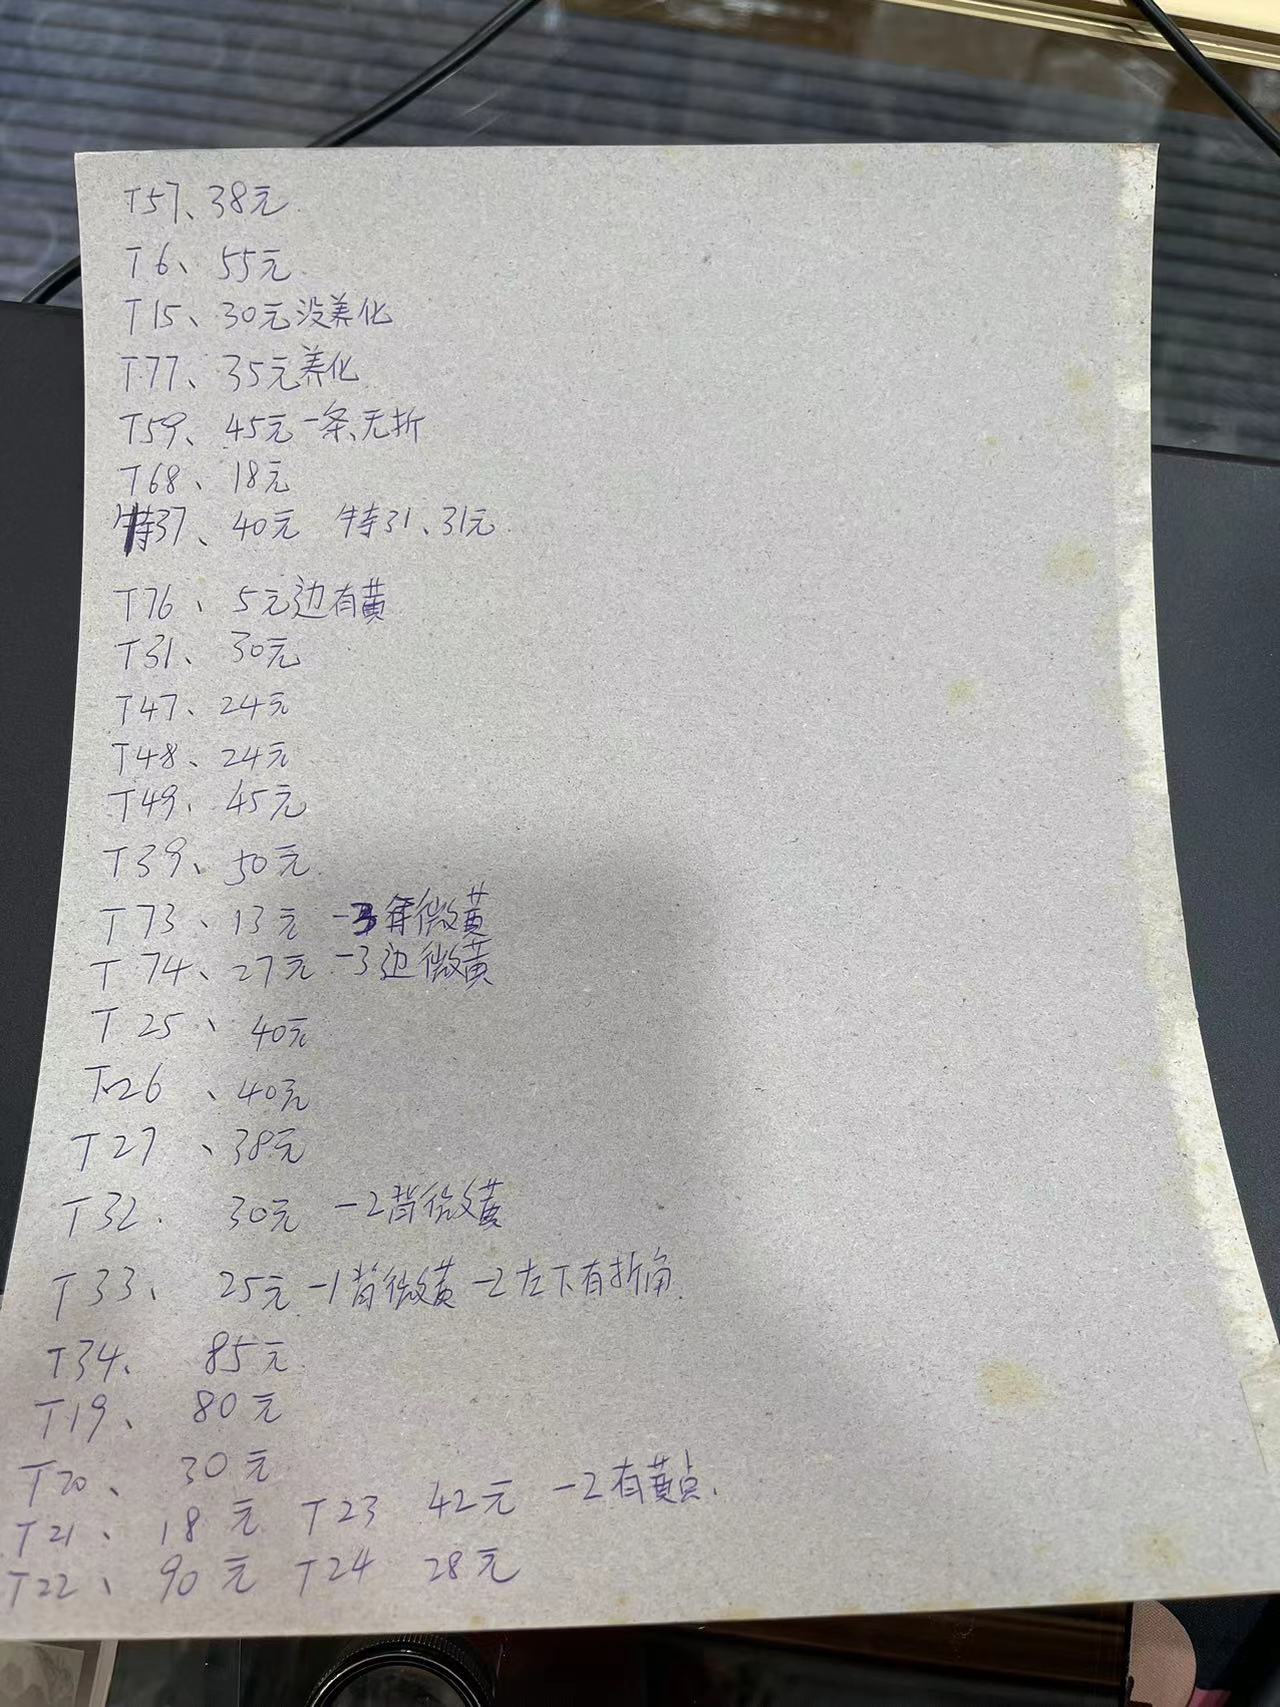 T57、38元
T6、55元
T15、30元没养化
T77、35元养化
T59、45元一条、无折
T68、18元
特37、40元 特31、31元
T76、5元边有黄
T31、30元
T47、24元
T48、24元
T49、45元
T39、50元
T73、13元 -3 微黄
T74、27元 -3边微黄
T25、40元
T26、40元
T27、38元
T32、30元 -2背微黄
T33、25元 -1背微黄 -2左下有折角
T34、85元
T19、80元
T20、30元
T21、18元 T23 42元 -2有黄点
T22、90元 T24 28元